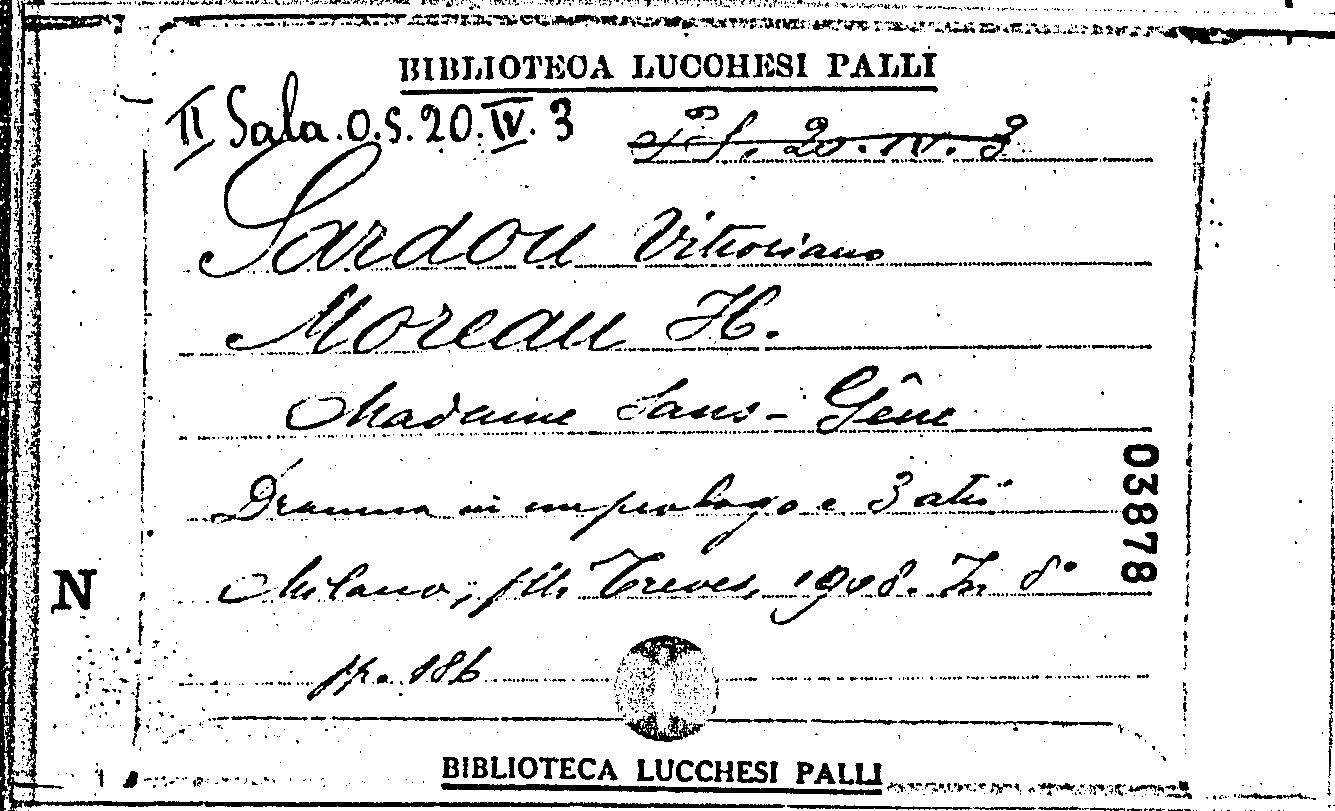 BIBLIOTECA LUCCHESI PALLI
II Sala.O.S.20.IV.3
20.IV.3
Sardou Vittoriano
Moreau H.
Madame Sans-Gêne
Dramma in un prologo e 3 atti
Milano, flli Treves, 1908. In 8°
pp. 186
03878
N
BIBLIOTECA LUCCHESI PALLI